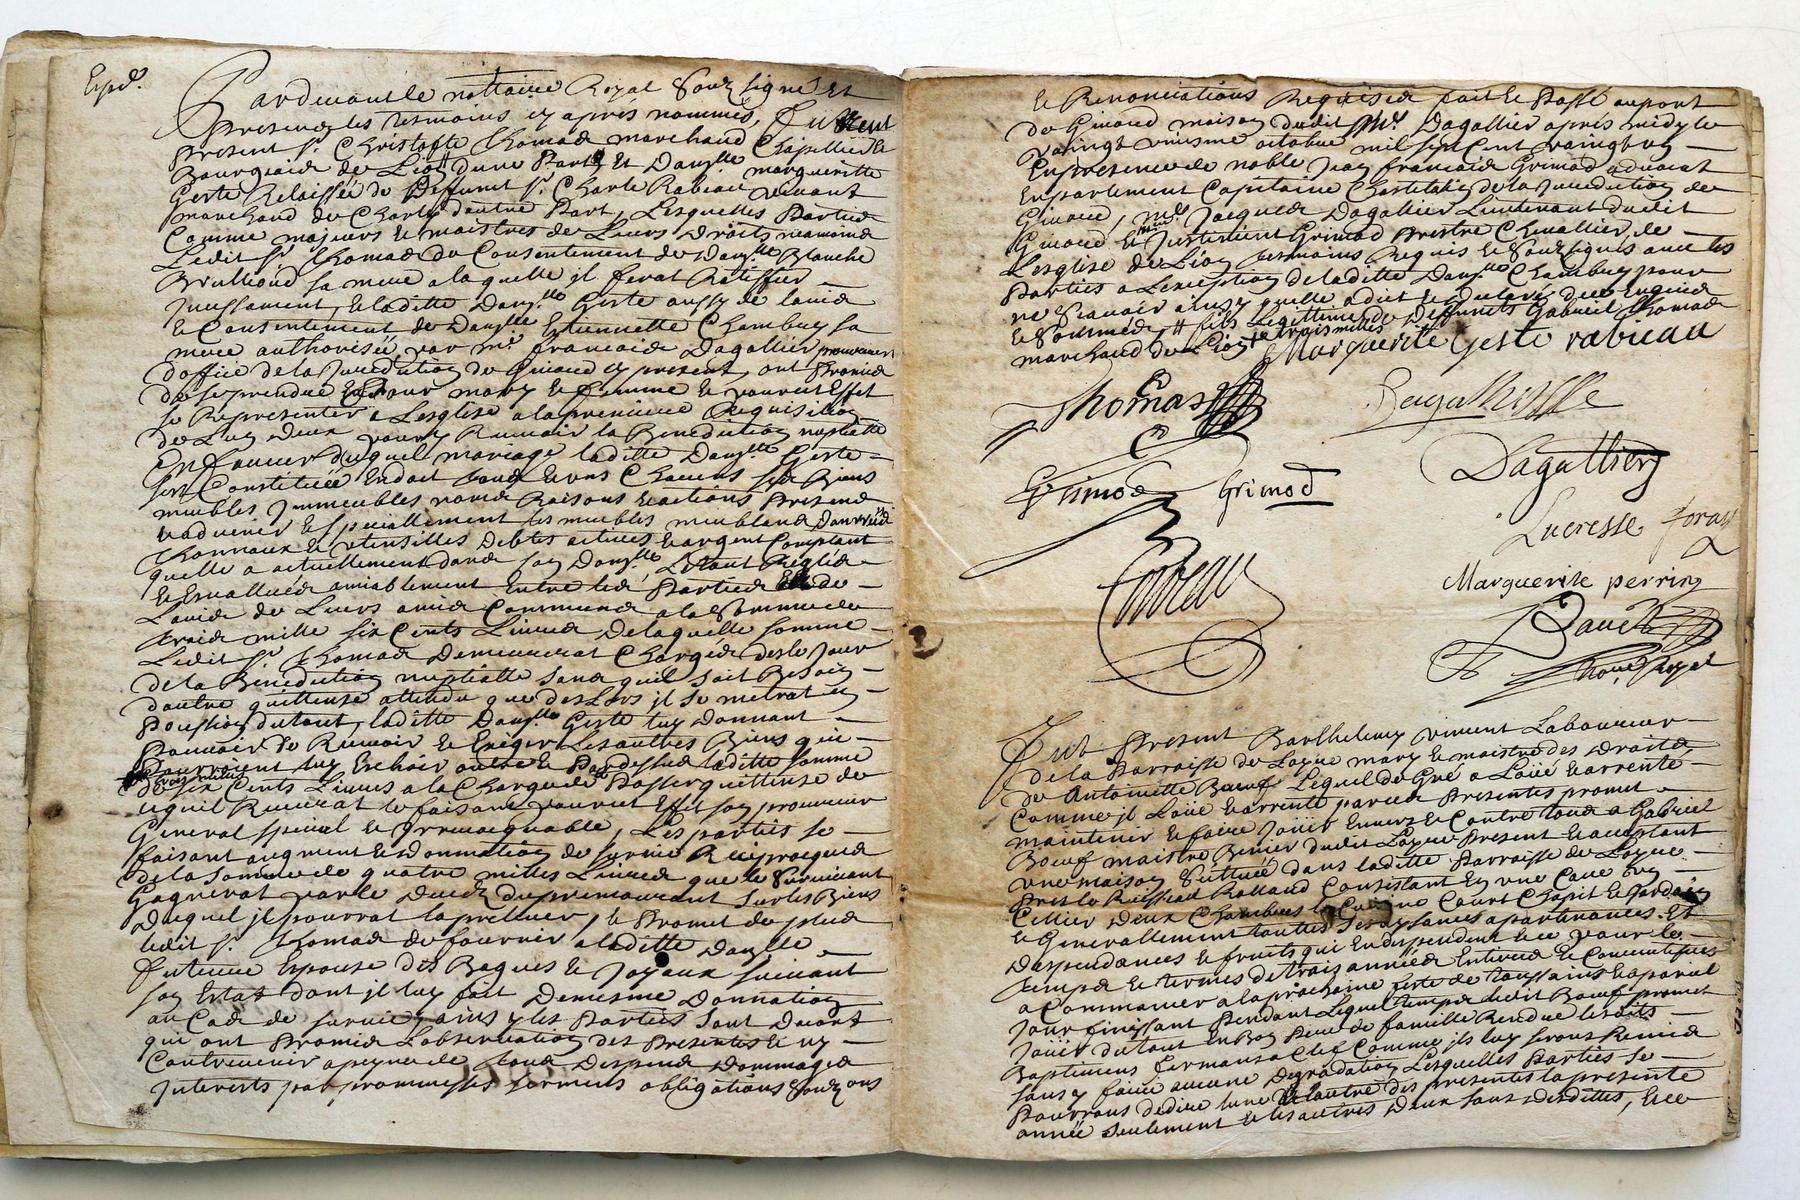 Expd.
Pardevant le nottaire Royal Souz signé et
presence les tesmoins cy après nommés, Furent
present Sr. Christofle Thomas marchand Chapellier
Bourgiois de Lion d'une Part, Et Dauzlle margueritte
Geste Relaissée de Deffunct Sr. Charle Rabeau vivant
marchand de d'autre Part, Lesquelles Parties
Comme majeurs et maistres de Leurs Droits mesmes
Ledit Sr. Thomas du Consentement de Dauzlle Blanche
Brullioud sa mere a laquelle jl ferat Ratiffier
Jncessament, et laditte Dauzlle Geste aussy de lavis
et Consentement de Dauzlle Estiennette Chambry sa
mere authorisée par mre. francois Dagallier procureur
d'office de la Juridiction de Givord cy present, ont Promis
de se prendre Et pour mary et femme et pour cet Effet
se Representer a Lesglise a la premiere Requisition
de Lun deux pour y Recevoir la Benediction nuptialle
En faveur duquel mariage laditte Dauzlle Geste
sest Constituée En dot tous et uns Chacuns ses Biens
meubles Jmmeubles noms Raisons et actions Presens
et advenir et speciallement les meubles meublans danrées
et utensilles debtes actives et argent Comptant
quelle a actuellement dans son Dauzlle, Le tout Reglé
et Evallués amiablement Entre les Parties et de
Lavis de Leurs amis Communs a la Somme de
trois mille six Cents Livres, De laquelle somme
Ledit Sr. Thomas Demeurerat Chargé des le Jour
de la Benediction nuptialle sans quil soit Besoin
d'autre quittense attendu que des Lors jl se metrat en
Possession du tout, laditte Dauzlle Geste luy Donnant
Pouvoir de Recevoir et Exiger Les autres Biens qui
Pourroient luy Escheoir outre et Pardessus laditte somme
de trois milles six Cents Livres a la Charge de Passer quittense de
ce quil Recevrat le faisant pour cet Effet son procureur
General special et jrrevocquable, Les parties se
faisant augment et donnation de survie Reciproque
de la Somme de quatre milles Livres que le Survivant
Gagnerat par le Decez du premourant sur les Biens
Duquel jl pourrat la prelever, et Promet de plus
ledit Sr. Thomas de fournir a laditte Dauzlle
future Espouse des Bagues et Joyaux suivant
son Estat dont jl luy fait Demesme Donnation
au Cas de survie, ainsy les Parties Sont Dacort
qui ont Promis Lobservation des Presentes et ny
Contrevenir a peyne de tous Despens Dommages
Jnterests par promesses sermens obligations Souz ons
et Renonciations Requises fait et Passé au port
de Givord maison dudit mre. Dagallier apres midy le
vaingt octobre mil sept Cent vaingt
En presence de noble Jean francois Grimod advocat
En parlement Capitaine Chastelain de la Juridiction de
Givord, mre. Jacques Dagallier Lieutenant dudit
Givord et mre Grimod Prestre Chevallier de
Lesglise de Lion tesmoins Requis et Souzsignés avec les
Parties a Lexception de laditte Dauzlle Chambry pour
ne Scavoir ainsy quelle a dict et declaré de ce Enquise
et Sommée, # fils Legittime de Deffunts Gabriel Thomas
marchand du Lion + et trois milles Marguerite Geste rabeau
Thomas
Dagallier
Grimod Grimod
Lucresse foray
Corbeau
Marguerite perrin
Nore. Royal
Fut Present Barthelemy vincent Laboureur
de la Parroisse de Loyre mary et maistre des droits
de Antoinette Boeuf Lequel de Gré a Loüé et arrenté
Comme jl Loüe et arrente par ces Presentes promet
maintenir et faire Joüir Envers et Contre tous a Gabriel
Boeuf maistre dudit Loyre present et acceptant
vne maison Scittuée dans laditte Parroisse de Loyre
Pres le Ruisseau Rolland Consistant En vne Cave
Cellier deux Chambres Court Chapit et Jardain
et Generallement touttes ses aysances apartenances Et
Despendances et fruits qui En despendent Et ce pour le
Temps et termes de trois années Entieres et Consecutives
a Commancer a la prochaine feste de toussains et a pariel
Jour finissant Pendant Lequel temps ledit Boeuf promet
Joüir du tout En Bon Pere de famille Rendre les dits
Bastimens fermans a Clef Comme jls luy seront Remis
Sans y faire aucune Degradation Lesquelles Parties se
Pourront dedire lune et lautre des presentes la presente
année seulement et les autres deux sans desdittes, Et ce